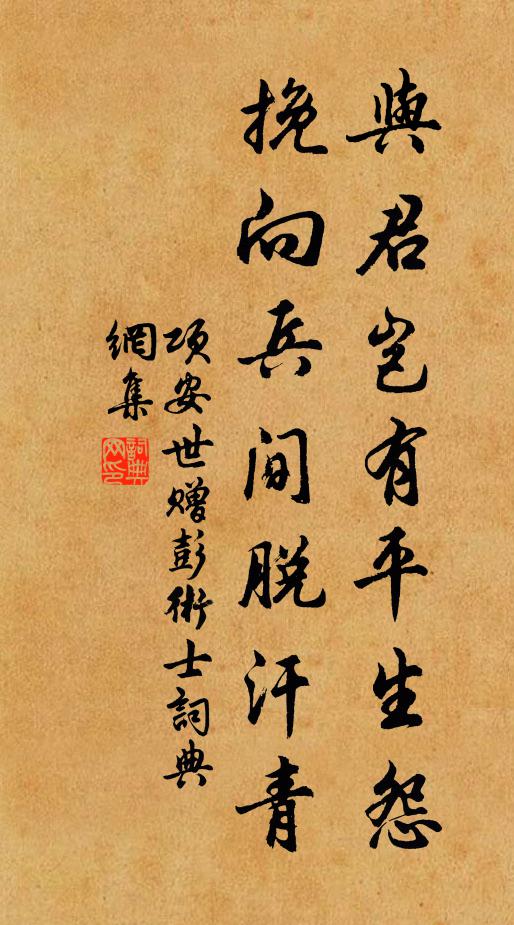 與君豈有平生怨
挽向兵間脫汗青
項安世贈彭術士詞典
網集
詞典網印